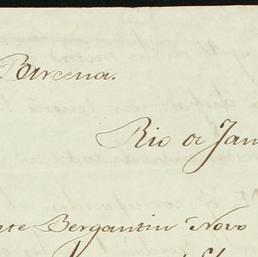 Barcena.
Rio de Jan
te Bergantin Novo